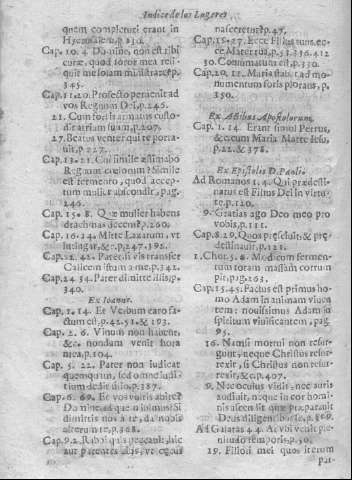 Indice de los Lugares
quem completuri erant in
Cap. 10. 4. Domine, non est tibi
curæ, quod soror mea reli-
quit me solam ministrare? p.
345.
Cap. 11. 20. Profecto pervenit ad
vos Regnum Dei, p. 246.
21. Cum fortis armatus custo-
dit atrium suum, p. 207.
27. Beatus venter qui te porta-
uit, p. 227.
Cap. 13. 21. Cui simile æstimabo
Regnum cœlorum? Simile
est fermento, quod accep-
tum mulier abscondit, pag.
246.
Cap. 15. 8. Quæ mulier habens
drachmas decem? p. 260.
Cap. 16. 24. Mitte Lazarum, vt
intingat, &c. p. 247. 392.
Cap. 22. 42. Pater si vis transfer
Calicem istum a me, p. 342.
Cap. 24. 34. Pater dimitte illis, p.
340.
Ex Ioanne.
Cap. 1. 14. Et Verbum caro fa-
ctum est, p. 42. 51. & 193.
Cap. 2. 6. Vinum non habent,
&c. nondum venit hora
mea, p. 104.
Cap. 5. 22. Pater non iudicat
quemquam, sed omne iudi-
tium dedit filio, p. 387.
Cap. 6. 69. Et vos vultis abire?
Domine, ad quem ibimus? Si
dimittis nos à te, da nobis
alterum te, p. 368.
Cap. 9. 2. Rabbi quis peccauit, hic
aut parentes eius, vt cæcus
nasceretur? p. 47.
Cap. 19. 27. Ecce Filius tuus, ec-
ce Mater tua, p. 53. 336. 412
30. Consumatum est, p. 330.
Cap. 20. 11. Maria stabat ad mo-
numentum foris plorans, p.
350.
Ex Actibus Apostolorum.
Cap. 1. 14. Erant simul Petrus,
&c. cum Maria Matre Iesu,
p. 22. & 378.
Ex Epistolis D. Paoli.
Ad Romanos 1. 4. Qui prædesti-
natus est Filius Dei in virtu-
te, p. 120.
9. Gratias ago Deo meo pro
vobis, p. 111.
Cap. 8. 29. Quos præsciuit, & præ-
destinauit, p. 121.
1. Chor. 5. 6. Modicum fermen-
tum totam massam corrum
pit, pag. 163.
Cap. 15. 45. Factus est primus ho-
mo Adam in animam viuen
tem: nouissimus Adam in
spiritum viuificantem, pag.
95.
16. Namsi mortui non resur-
gunt, neque Christus resur-
rexit, si Christus non resur-
rexit, &c. p. 407.
9. Nec oculus vidit, nec auris
audiuit, nec in cor homi-
nis ascendit quæ præparauit
Deus diligentibus se, p. 869.
Ad Galatas 4. 4. At vbi venit ple-
nitudo temporis, p. 30.
19. Filioli mei quos iterum
par-